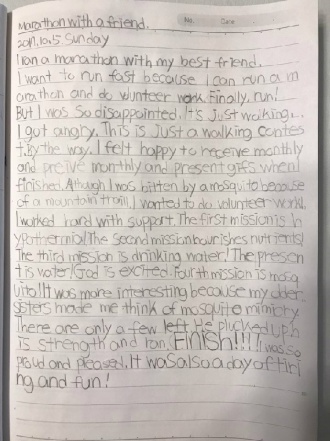 Marathon with a friend.
No. Date
2019.10.5 Sunday
I ran a marathon with my best friend.
I want to run fast because I can run a m
arathon and do vlunteer work. Finally, run!
But I was so disappointed. It's Just walking...
I got angry. This is Just a walking contes
t. By the way, I felt happy to receive monthly
and preive monthly and present gifs when I
finished. Athough I was bitten by a mosquito because
of a mountain trail, I wanted to do volunteer work.
I worked hard with support. The first mission is h
ypothermia! The second mission nourishes nutrients!
The third mission is drinking water! The presen
t is water! God is excited. Fourth mission is mosq
uito! It was more interesting because my older
sisters made me think of mosquito mimicry.
There are only a few left. He plucked up h
is strength and ran. Finish!!!! I was so
proud and pleased. It was also a day of tiri
ng and fun!